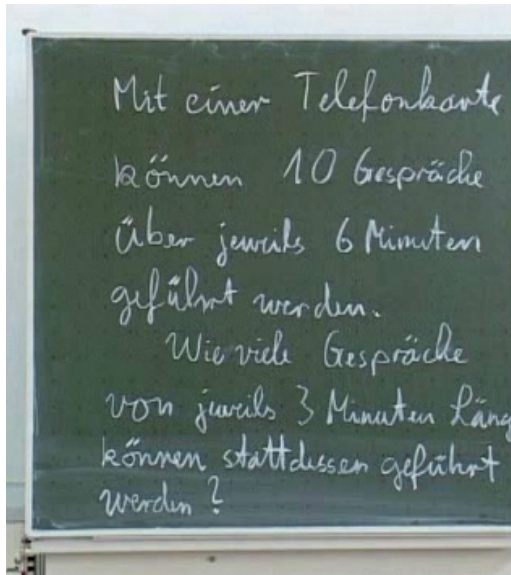 Mit einer Telefonkarte
können 10 Gespräche
über jeweils 6 Minuten
geführt werden.
Wie viele Gespräche
von jeweils 3 Minuten Läng
können stattdessen geführt
werden?